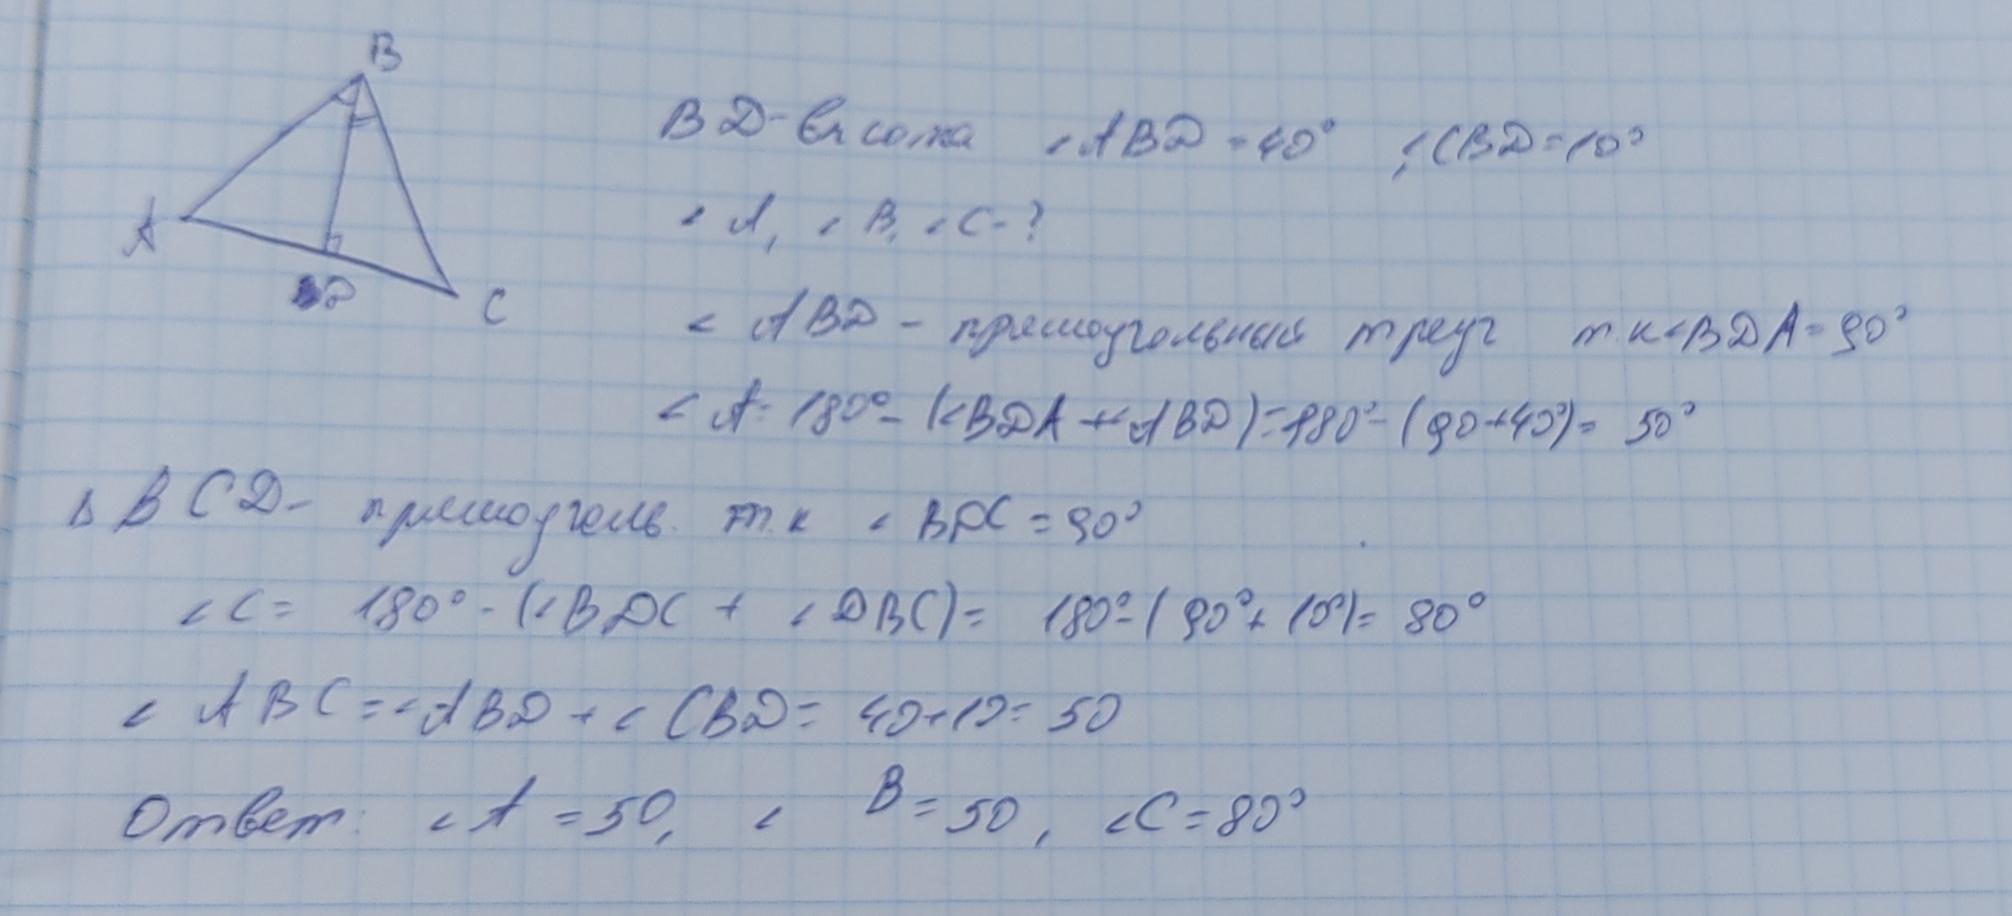 B
A
D
C
BD - высота ∠ABD = 40° , ∠CBD = 10°
∠A, ∠B, ∠C - ?
∠ABD - прямоугольный треуг т.к ∠BDA = 90°
∠A = 180° - (∠BDA + ∠ABD) = 180° - (90 + 40°) = 50°
Δ BCD - прямоуголь. т.к ∠BDC = 90°
∠C = 180° - (∠BDC + ∠DBC) = 180° - (90° + 10°) = 80°
∠ABC = ∠ABD + ∠CBD = 40 + 10 = 50
Ответ: ∠A = 50, ∠B = 50, ∠C = 80°